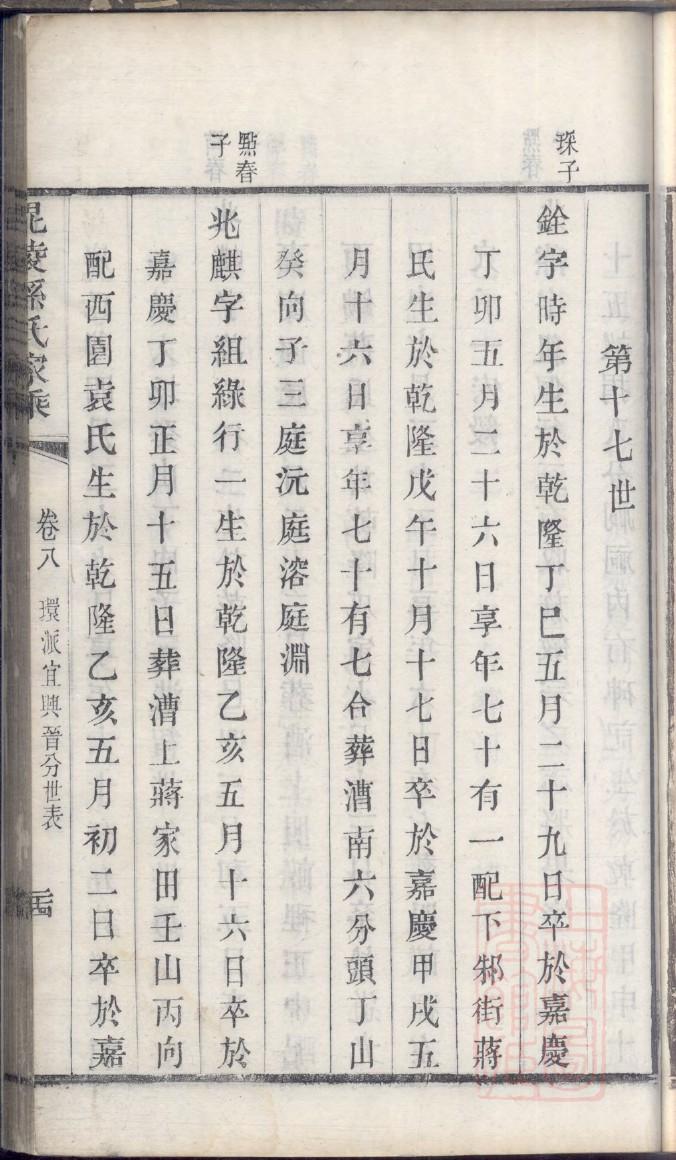 第十七世
琛子
銓字時年生於乾隆丁巳五月二十九日卒於嘉慶
丁卯五月二十六日享年七十有一配下邾街蔣
氏生於乾隆戊午十月十七日卒於嘉慶甲戌五
月十六日享年七十有七合葬漕南六分頭丁山
癸向子三庭沅庭溶庭淵
點春
子
兆麒字組綠行一生於乾隆乙亥五月十六日卒於
嘉慶丁卯正月十五日葬漕上蔣家田壬山丙向
配西圍袁氏生於乾隆乙亥五月初二日卒於嘉
毘陵孫氏家乘
卷八 環派宜興晉分世表